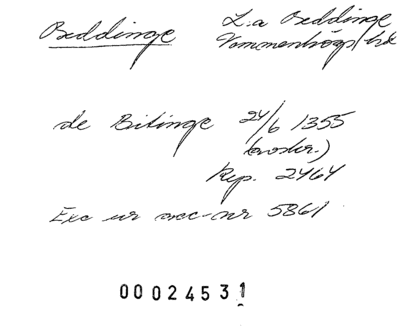 Beddinge
L:a Beddinge
Vemmenhögs hd
de Bitinge 24/6 1355
(avskr.)
Rep. 2464
Exc ur acc-nr 5861
00024531